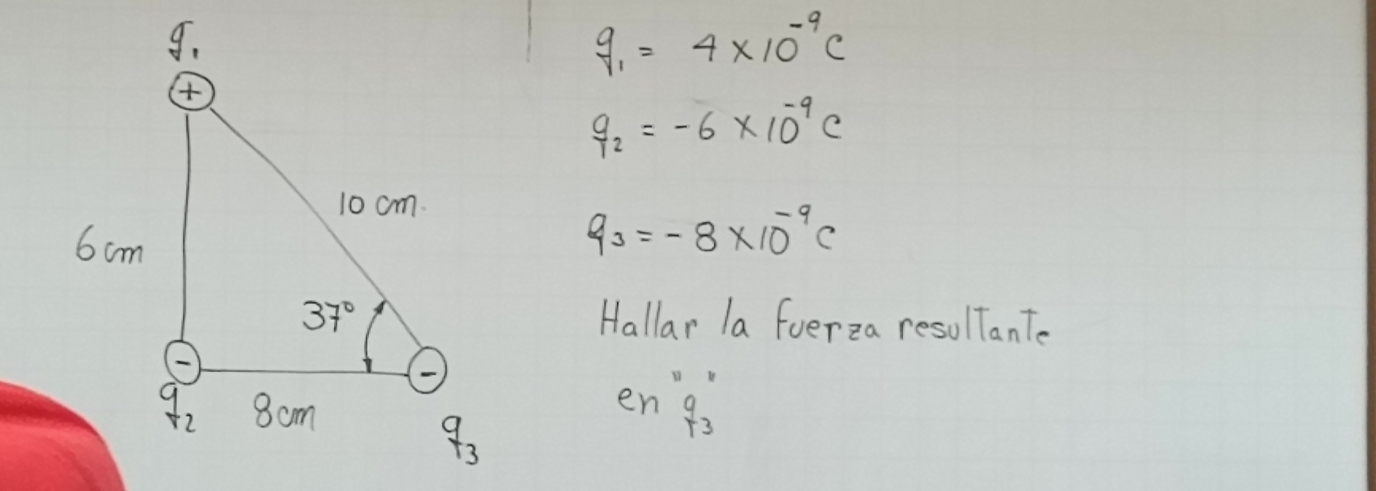 q₁
6 cm
10 cm.
37°
q₂
8 cm
q₃
q₁ = 4 x 10⁻⁹ C
q₂ = -6 x 10⁻⁹ C
q₃ = -8 x 10⁻⁹ C
Hallar la fuerza resultante
en "q₃"